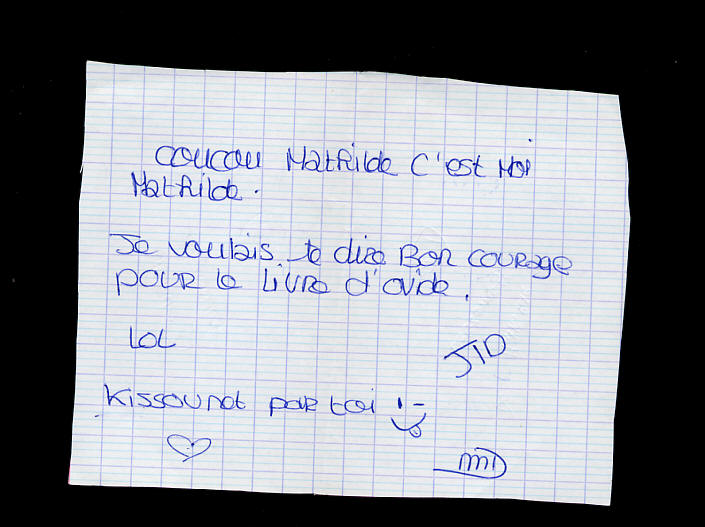 coucou Mathilde c'est moi
Mathilde.
Je voulais te dire Bon courage
pour le livre d'ovide.
LOL
JTD
Kissounot pour toi